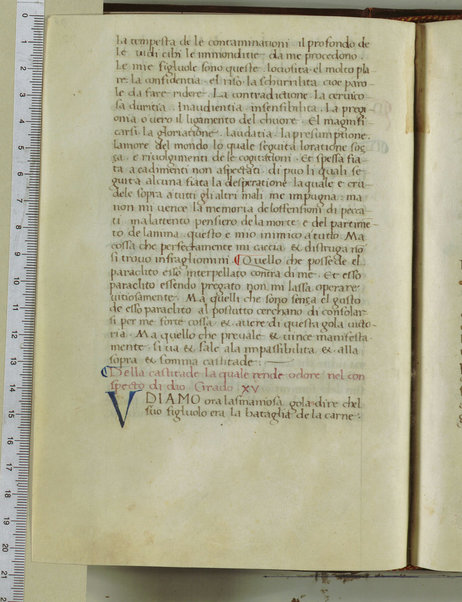 la tempesta de le contaminationi. il profondo de
le uidi cibi le immonditie da me procedono.
Le mie figluole sono queste. locioſita el molto pla
re. la confidentia. el riso. la scurrilita cioe paro
le da fare ridere. La contradictione. La ceruico
sa duritia. Inaudientia insensibilita. La pregi
onia o uero il ligamento del chuore. El magnifi
carsi. la gloriatione. laudatia. la presumptione.
lamore del mondo. lo quale seguita loratione soç
ça. e riuolgimenti de le cogitationi. Et spessa fia
ta acadimenti non aspectati. di puo li quali se
guita alcuna fiata la desperatione la quale e cru
dele sopra a tutti gli altri mali me impugna. ma
non mi uence la memoria de loffensioni di pecca
ti. ma lattento pensiero de la morte. e del partime
to de lanima. questo e mio inimico a tutto. Ma
cossa che perfectamente mi cacci & distruga no
si trouo infragliomini. Quello che possede el
paraclito esso interpellato contra di me. Et esso
paraclito essendo pregato non mi lassa operare
uitiosamente. Ma quelli che sono senza el gusto
de esso paraclito al postutto cerchano di consolar
si per me forte cossa & auere di questa gola uicto
ria. Ma quello che preuale & uince manifesta
mente. si ua & sale a la impassibilita. & alla
sopra & somma castitade.
Della castitade la quale rende odore nel con
specto di dio Grado XV
VDIAMO ora la smaniosa gola dire chel
suo figluolo era la bataglia de la carne.